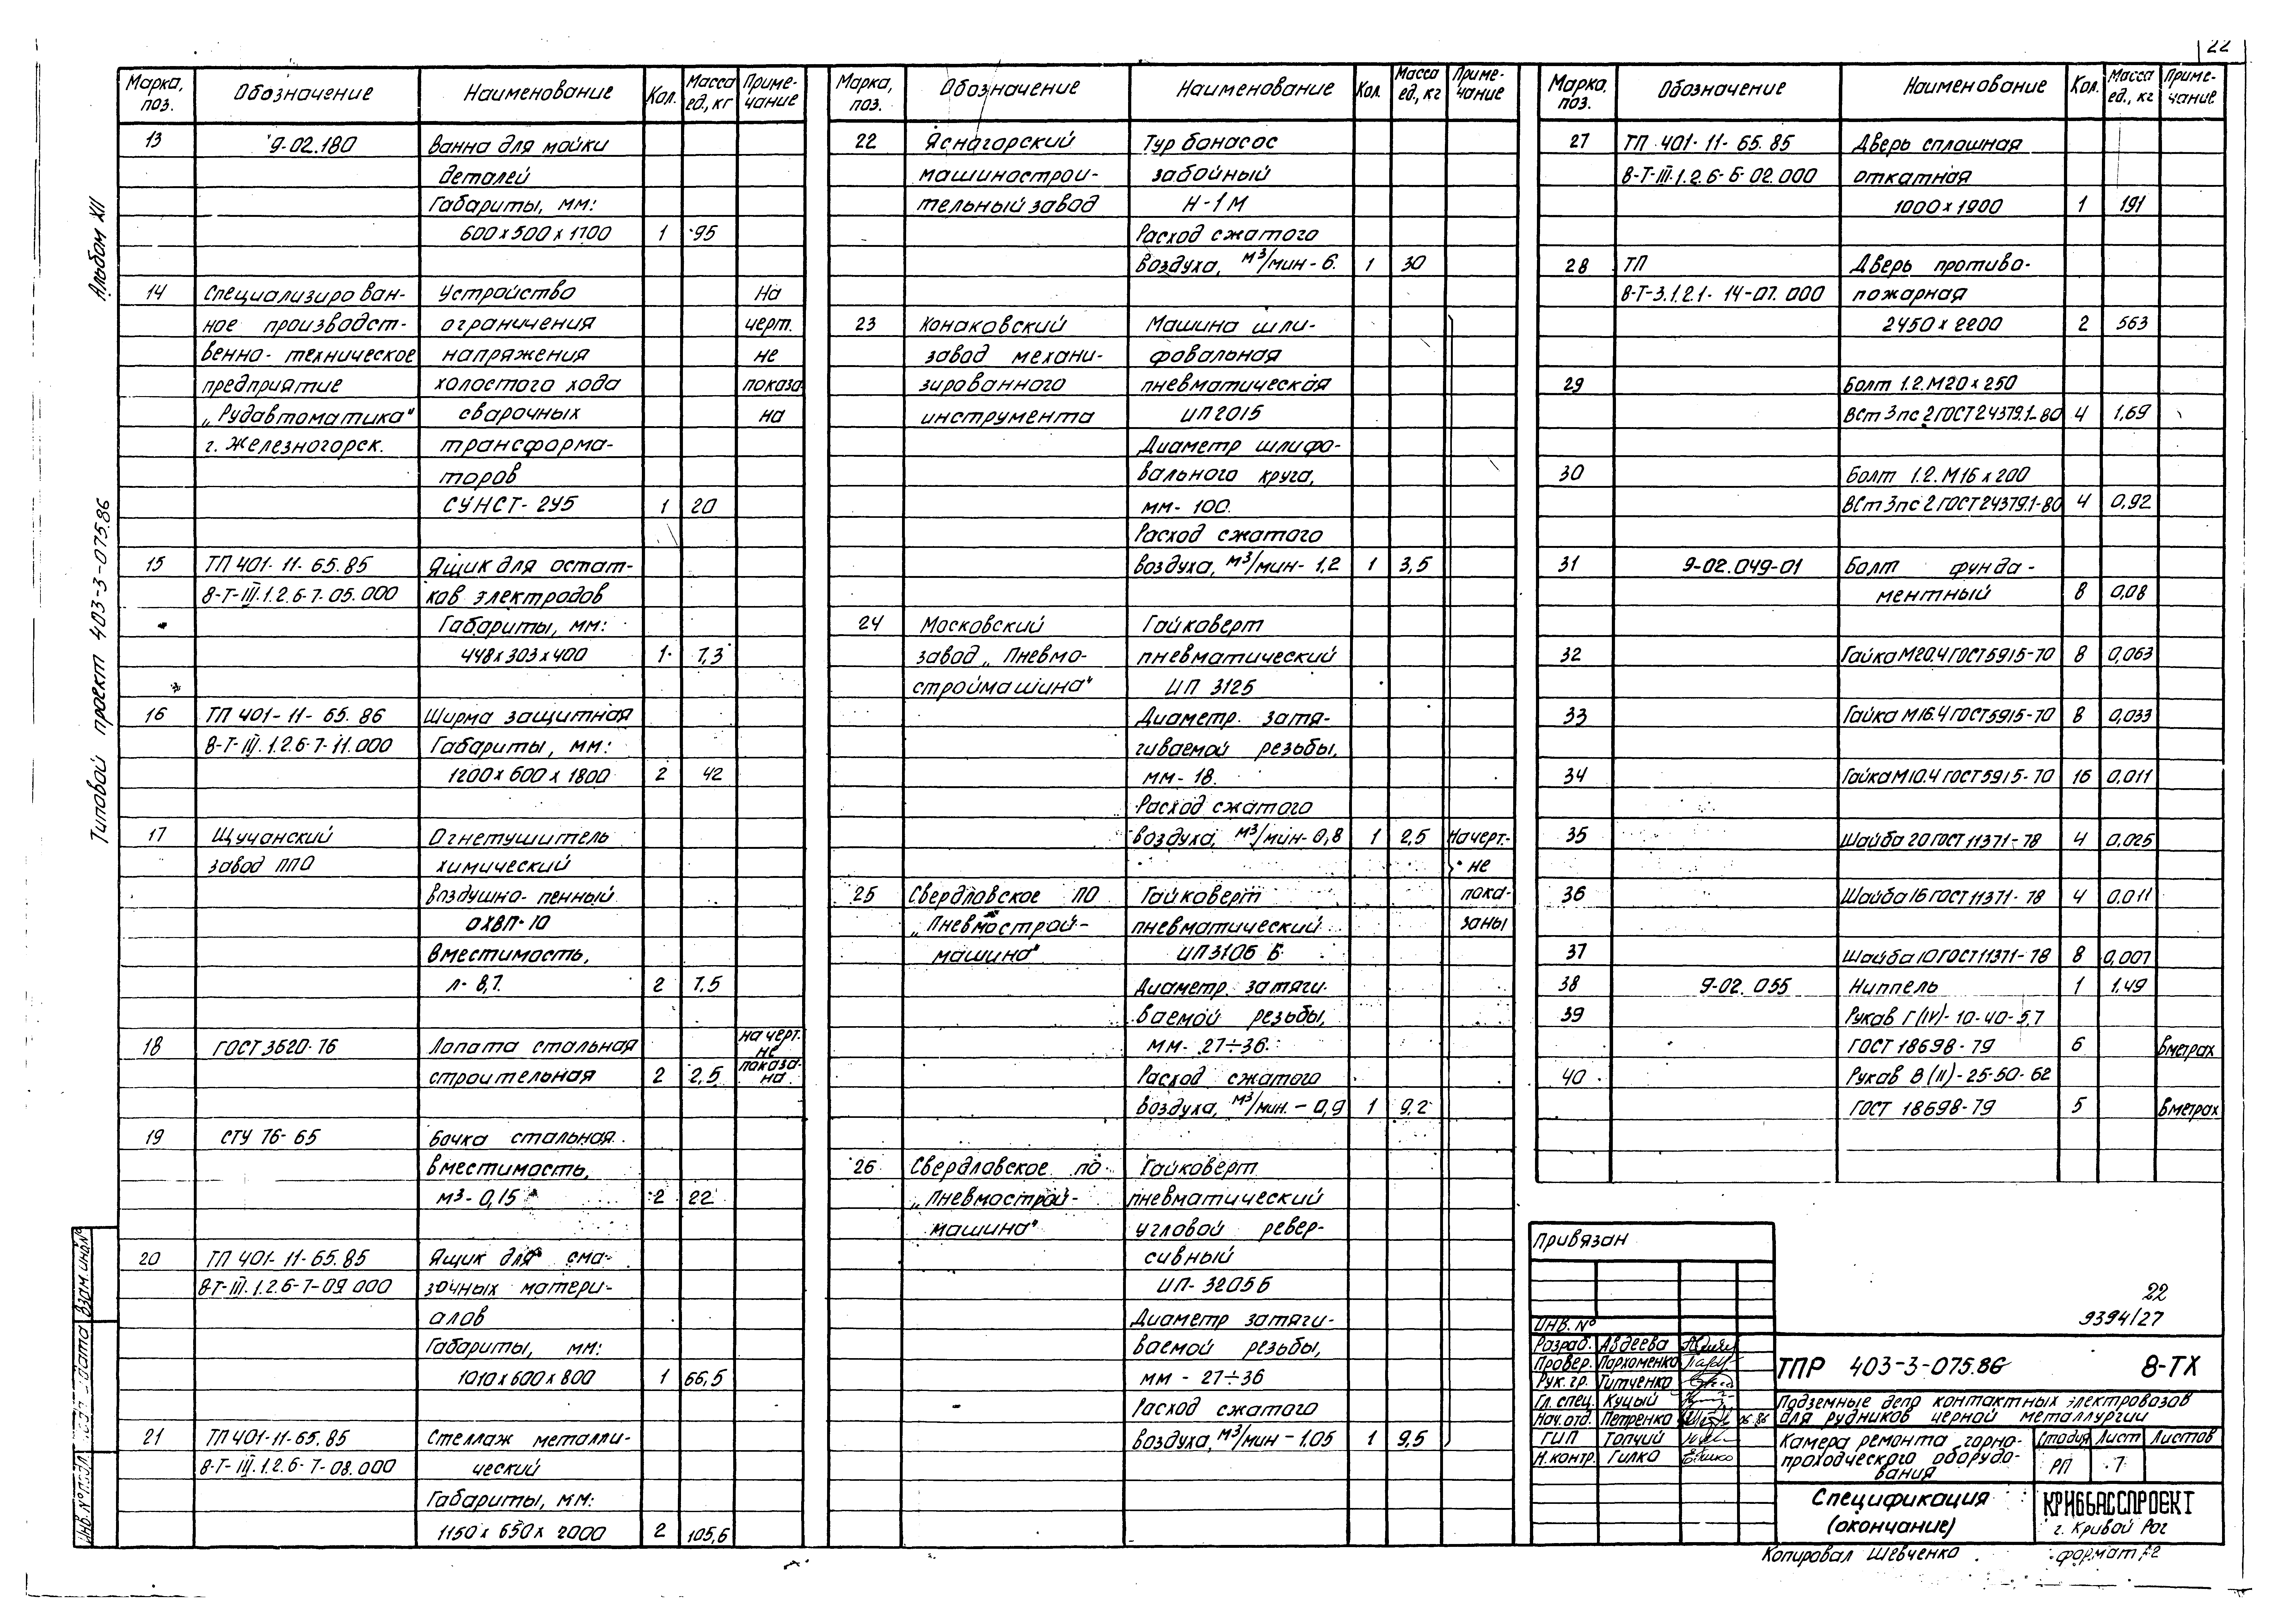 22
Альбом XII
Типовой проект 403-3-075.86
Марка, поз. Обозначение Наименование Кол. Масса ед., кг Приме-чание
13 9-02.180 Ванна для мойки
деталей
Габариты, мм:
600х500х1700 1 95
14 Специализирован- Устройство На
ное производст- ограничения черт.
венно-техническое напряжения не
предприятие холостого хода показа
„Рудавтоматика" сварочных на
г. Железногорск. трансформа-
торов
СУНСТ-2У5 1 20
15 ТП 401-11-65.85 Ящик для остат-
8-Т-III.1.2.6-7-05.000 ков электродов
Габариты, мм:
448х303х400 1 7,3
16 ТП 401-11-65.86 Ширма защитная
8-Т-III.1.2.6-7-11.000 Габариты, мм:
1200х600х1800 2 42
17 Щучанский Огнетушитель
завод ППО химический
воздушно-пенный
ОХВП-10
Вместимость,
л-8,7. 2 7,5
18 ГОСТ 3620-76 Лопата стальная на черт. не
строительная 2 2,5 показа-на
19 СТУ 76-65 Бочка стальная
вместимость,
м³-0,15 2 22
20 ТП 401-11-65.85 Ящик для сма-
8-Т-III.1.2.6-7-09.000 зочных матери-
алов
Габариты, мм:
1010х600х800 1 66,5
21 ТП 401-11-65.85 Стеллаж металли-
8-Т-III.1.2.6-7-08.000 ческий
Габариты, мм:
1150х650х2000 2 105,6
Марка, поз. Обозначение Наименование Кол. Масса ед., кг Приме-чание
22 Яснагорский Турбонасос
машинострои- забойный
тельный завод Н-1М
Расход сжатого
воздуха, м³/мин-6. 1 30
23 Конаковский Машина шли-
завод механи- фовальная
зированного пневматическая
инструмента ИП2015
Диаметр шлифо-
вального круга,
мм-100.
Расход сжатого
воздуха, м³/мин-1,2 1 3,5
24 Московский Гайковерт
завод „Пневмо- пневматический
строймашина" ИП 3125
Диаметр затя-
гиваемой резьбы,
мм-18.
Расход сжатого
воздуха, м³/мин-0,8 1 2,5 На черт.
не
25 Свердловское ПО Гайковерт пока-
„Пневмострой- пневматический заны
машина" ИП3106 Б
Диаметр затяги-
ваемой резьбы,
мм-27÷36.
Расход сжатого
воздуха, м³/мин.-0,9 1 9,2
26 Свердловское ПО Гайковерт
„Пневмострой- пневматический
машина" угловой ревер-
сивный
ИП-3205Б
Диаметр затяги-
ваемой резьбы,
мм - 27÷36
Расход сжатого
воздуха, м³/мин-1.05 1 9,5
Марка, поз. Обозначение Наименование Кол. Масса ед., кг Приме-чание
27 ТП 401-11-65.85 Дверь сплошная
8-Т-III.1.2.6-6-02.000 откатная
1000х1900 1 191
28 ТП Дверь противо-
8-Т-3.1.2.1-14-07.000 пожарная
2450х2200 2 563
29 Болт 1.2.М20х250
ВСт3пс2 ГОСТ24379.1-80 4 1,69
30 Болт 1.2.М16х200
ВСт3пс2 ГОСТ24379.1-80 4 0,92
31 9-02.049-01 Болт фунда-
ментный 8 0,08
32 Гайка М20.4 ГОСТ5915-70 8 0,063
33 Гайка М16.4 ГОСТ5915-70 8 0,033
34 Гайка М10.4 ГОСТ5915-70 16 0,011
35 Шайба 20 ГОСТ 11371-78 4 0,025
36 Шайба 16 ГОСТ 11371-78 4 0,011
37 Шайба 10 ГОСТ 11371-78 8 0,007
38 9-02.055 Ниппель 1 1.49
39 Рукав Г(IV)-10-40-5,7
ГОСТ 18698-79 6 в метрах
40 Рукав В(II)-25-50-62
ГОСТ 18698-79 5 в метрах
Привязан
ИНВ. №
22
9394/27
Разраб. Авдеева
Провер. Пархоменко
Рук. гр. Титченко
Гл. спец. Куцый
Нач. отд. Петренко 06.86
ГИП Топчий
Н. контр. Гилко
ТПР 403-3-075.86 8-ТХ
Подземные депо контактных электровозов
для рудников черной металлургии
Камера ремонта горно-
проходческого оборудо-
вания
Стадия Лист Листов
РП 7
Спецификация
(окончание)
КРИВБАССПРОЕКТ
г. Кривой Рог
Копировал Шевченко
формат А2
Взам. инв. №
дата
Инв. № подл.